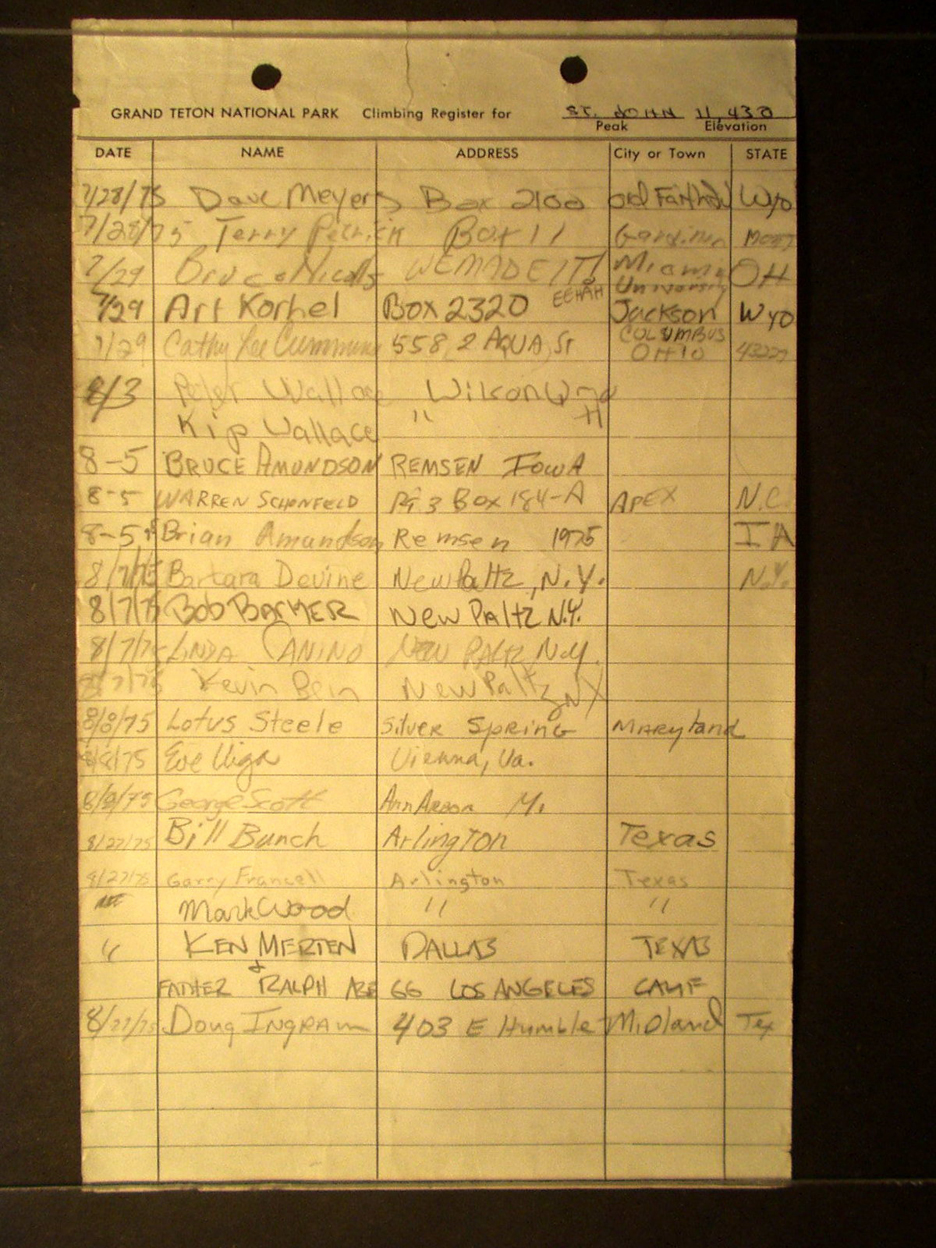 GRAND TETON NATIONAL PARK Climbing Register for ST. JOHN 11,430
Peak Elevation
DATE NAME ADDRESS City or Town STATE
7/28/75 Dave Meyers Box 2100 Old Faithful Wyo
7/28/75 Terry Petrick Box 11 Gardiner Mont
7/29 Bruce Nicolls WE MADE IT! Miami University OH
EEHAH
7/29 Art Korhel Box 2320 Jackson Wyo
7/29 Cathy Lee Cummins 558,2 AQUA St COLUMBUS OHIO
8/3 Peter Wallace Wilson Wyo
Kip Wallace "
8-5 BRUCE AMUNDSON REMSEN IOWA
8-5 WARREN SCHONFELD Rt 3 Box 184-A APEX N.C.
8-5 Brian Amundson Remsen 1975 IA
8/7/75 Barbara Devine New Paltz, N.Y. N.Y.
8/7/75 BOB BARKER NEW PALTZ N.Y.
8/7/75 LINDA CANINO NEW PALTZ N.Y.
8/7/75 Kevin Bein New Paltz NY
8/8/75 Lotus Steele Silver Spring Maryland
8/8/75 Eve Uiga Vienna, Va.
8/8/75 George Scott Ann Arbor M.
8/27/75 Bill Bunch Arlington Texas
8/27/75 Garry Francell Arlington Texas
Mark Wood " "
" KEN MERTEN DALLAS TEXAS
&
FATHER RALPH AGE 66 LOS ANGELES CALIF
8/27/75 Doug Ingram 403 E Humble Midland Tex